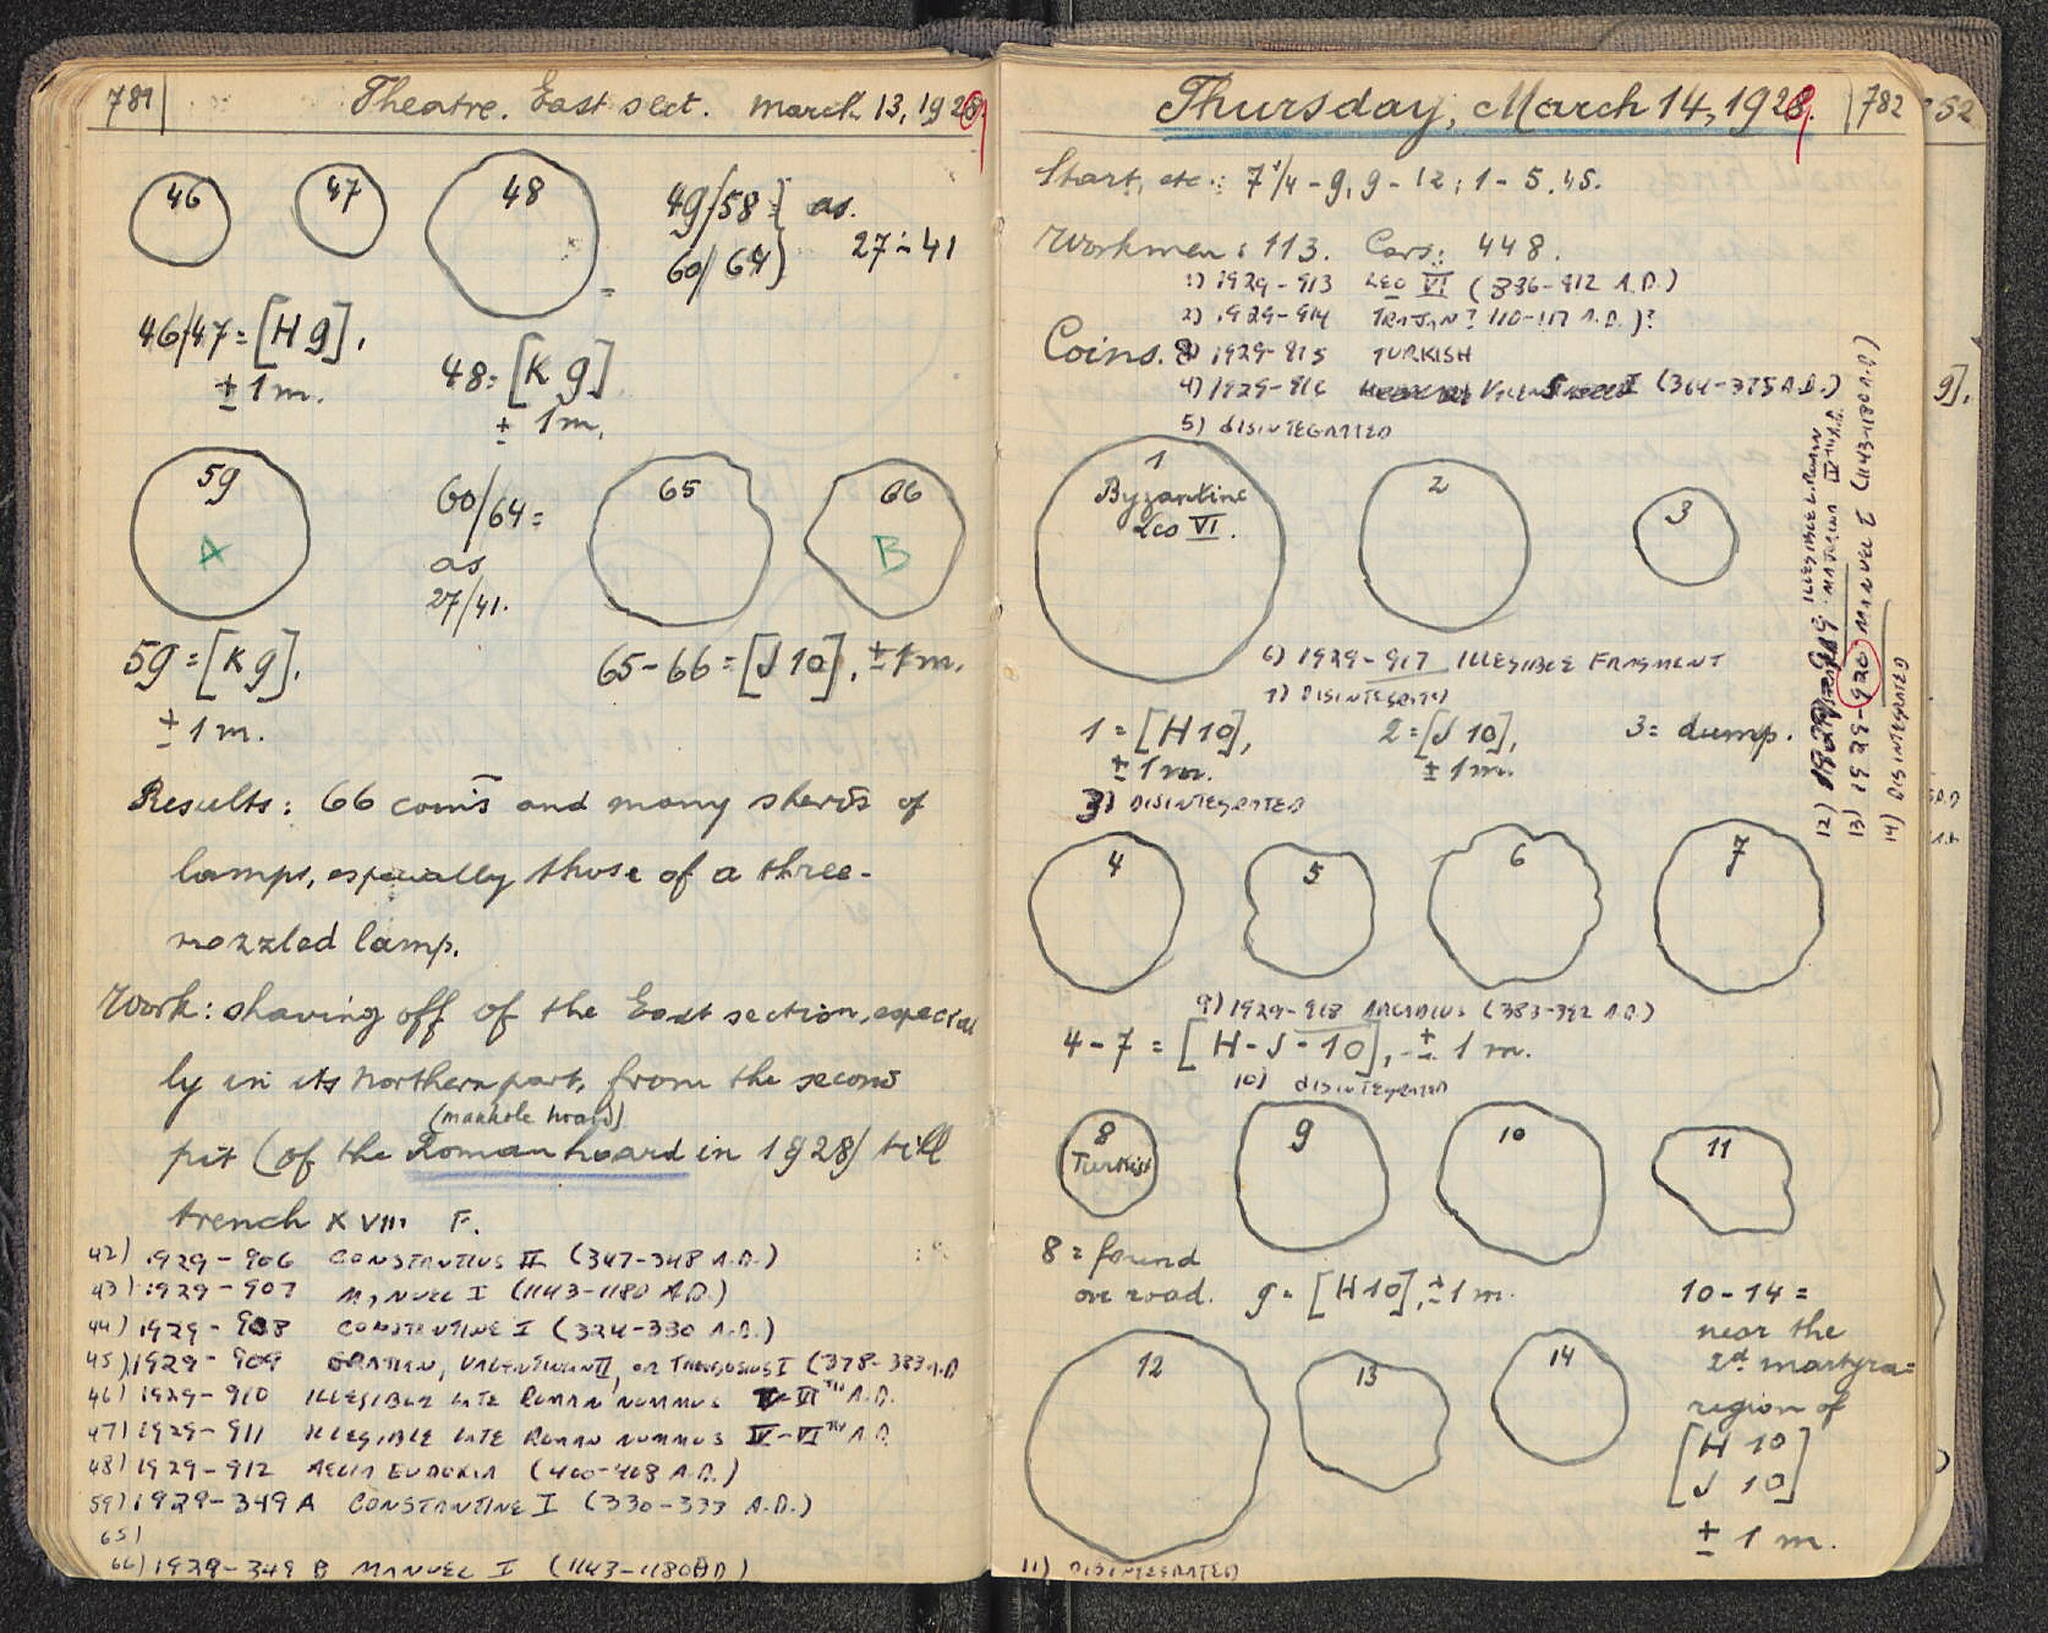 781
Theatre. East sect. March 13, 1929
46
47
48
49/58 = as.
60/64 27÷41
46/47 = [H 9].
± 1 m.
48 = [K 9]
± 1 m.
59
A
60/64 =
as
27/41.
65
66
B
59 = [K 9].
± 1 m.
65-66 = [J 10], ± 1 m.
Results: 66 coins and many sherds of
lamps, especially those of a three-
nozzled lamp.
Work: shaving off of the East section, especial
ly in its northern part, from the second
(manhole hoard)
pit (of the Roman hoard in 1928) till
trench XVIII F.
42) 1929-906 CONSTANTIUS II (347-348 A.D.)
43) 1929-907 MANUEL I (1143-1180 A.D.)
44) 1929-908 CONSTANTINE I (324-330 A.D.)
45) 1929-909 GRATIAN, VALENTINIAN II, OR THEODOSIUS I (378-383 A.D
46) 1929-910 ILLEGIBLE LATE ROMAN NUMMUS V-VI TH A.D.
47) 1929-911 ILLEGIBLE LATE ROMAN NUMMUS IV-VI TH A.D.
48) 1929-912 AELIA EUDOXIA (400-408 A.D.)
59) 1929-349 A CONSTANTINE I (330-333 A.D.)
65)
66) 1929-349 B MANUEL I (1143-1180 AD)
Thursday, March 14, 1929.
782
52
Start, etc.: 7 1/4 - 9, 9 - 12; 1 - 5.45.
Workmen: 113. Cars: 448.
1) 1929-913 LEO VI (886-912 A.D.)
2) 1929-914 TRAJAN? 110-117 A.D.)?
Coins. 8) 1929-915 TURKISH
4) 1929-916 I (364-375 A.D.)
5) DISINTEGRATED
9].
1
Byzantine
Leo VI.
2
3
6) 1929-917 ILLEGIBLE FRAGMENT
7) DISINTEGRATED
1 = [H 10],
± 1 m.
2 = [J 10],
± 1 m.
3 = dump.
3) DISINTEGRATED
4
5
6
7
9) 1929-918 ARCADIUS (383-392 A.D.)
4-7 = [H-J-10], ± 1 m.
10) DISINTEGRATED
8
Turkish
9
10
11
8 = found
on road.
9 = [H 10], ± 1 m.
10-14 =
near the
2d martyra=
region of
[H 10]
[J 10]
± 1 m.
12
13
14
11) DISINTEGRATED
12) 919 ILLEGIBLE L. ROMAN
IV TH A.D.
13) 1929-920 MANUEL I (1143-1180 A.D.)
14) DISINTEGRATED